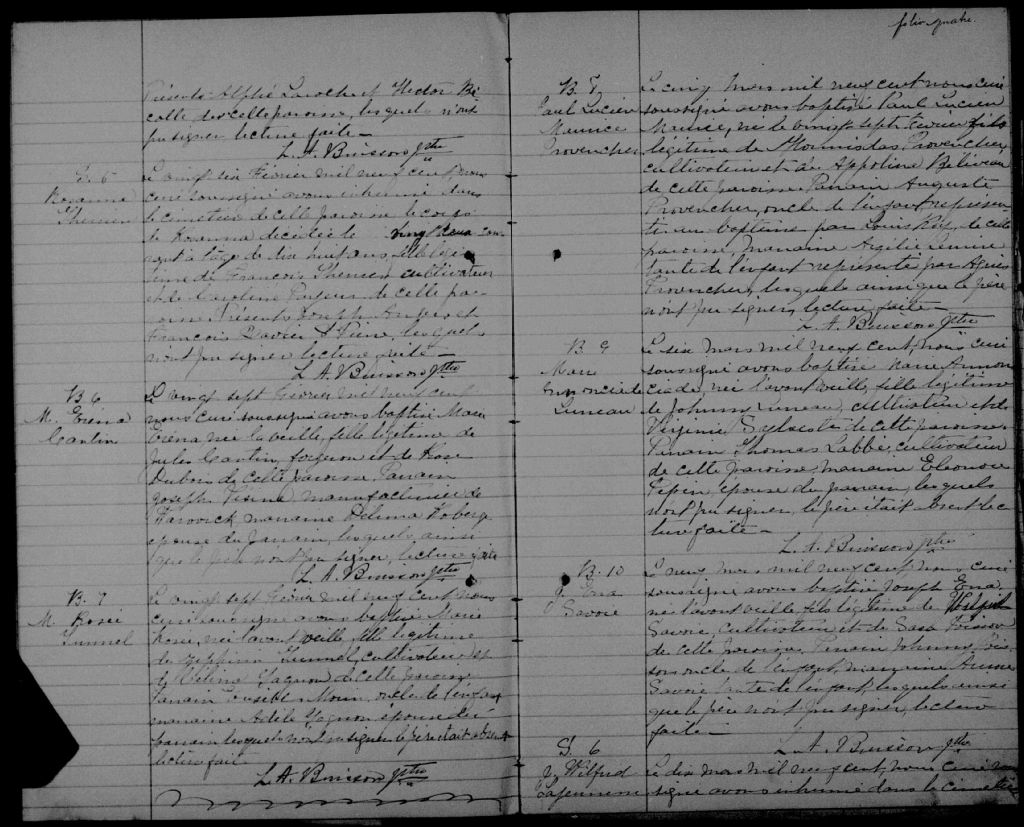 Présents Alphé Laroche et Hector Bé
de cette paroisse, lesquels n'ont
pu signer lecture faite —
L. A. Buisson Ptre
S. 5
Rosanna
Le vingt six Février mil neuf cent
curé soussigné avons inhumé dans
le cimetière de cette paroisse le corps
de Rosanna décédée le vingt
à l'age de dix huit ans, fille légi
time de François cultivateur
et de Caroline de cette pa-
roisse. Présents Joseph et
François Xavier lesquels
n'ont pu signer lecture faite —
L. A. Buisson Ptre
B. 6
M. Eréna
Cantin
Le vingt sept Février mil neuf cent
nous curé soussigné avons baptisé Marie
Eréna née la veille, fille légitime de
Jules Cantin, forgeron et de Rose
Dubois de cette paroisse Parrain
Joseph manufacturier de
Warwick marraine Délima Roberge
épouse du parrain, lesquels ainsi
que le père n'ont pu signer, lecture faite
L. A. Buisson Ptre
B. 7
M. Rosée
Le vingt sept Février mil neuf cent nous
curé soussigné avons baptisé Marie
Rosée, née l'avant veille, fille légitime
de cultivateur et
de Célina Gagnon de cette paroisse
Parrain Morin, oncle de l'enfant
marraine Adèle Gagnon épouse du
parrain lesquels n'ont pu signer le père était absent
lecture faite
L. A. Buisson Ptre
folio quatre.
B. 8
Paul Lucien
Maurice
Provencher
Le cinq Mars mil neuf cent nous curé
soussigné avons baptisé Paul Lucien
Maurice, né le vingt sept Février fils
légitime de Hormisdas Provencher
cultivateur et de Appoline Béliveau
de cette paroisse. Parrain Auguste
Provencher, oncle de l'enfant, représen-
té au baptême par Louis de cette
paroisse marraine
tante de l'enfant représenté par Agnès
Provencher, lesquels ainsi que le père
n'ont pu signer, lecture faite —
L. A. Buisson Ptre
B. 9
Marie
Annonciade
Luneau
Le six Mars mil neuf cent, nous curé
soussigné avons baptisé Marie Annon
ciade, née l'avant veille, fille légitime
de Johnny Luneau, cultivateur et de
Virginie Sylvestre de cette paroisse
Parrain Thomas Labbé, cultivateur
de cette paroisse marraine Eléonore
Pépin, épouse du parrain, lesquels
n'ont pu signer, le père était absent lec
ture faite —
L. A. Buisson Ptre
B. 10
J. Ena
Savoie
Le neuf Mars mil neuf cent nous curé
soussigné avons baptisé Joseph Ena,
né l'avant veille fils légitime de Wilfrid
Savoie, cultivateur et de Sara Poisson
de cette paroisse Parrain Johnny Pois-
son oncle de l'enfant, marraine
Savoie tante de l'enfant, lesquels ainsi
que le père n'ont pu signer, lecture
faite —
L. A. Buisson Ptre
S. 6
J. Wilfrid
Lajeunesse
Le dix Mars mil neuf cent, nous curé sous
signé avons inhumé dans le cimetière